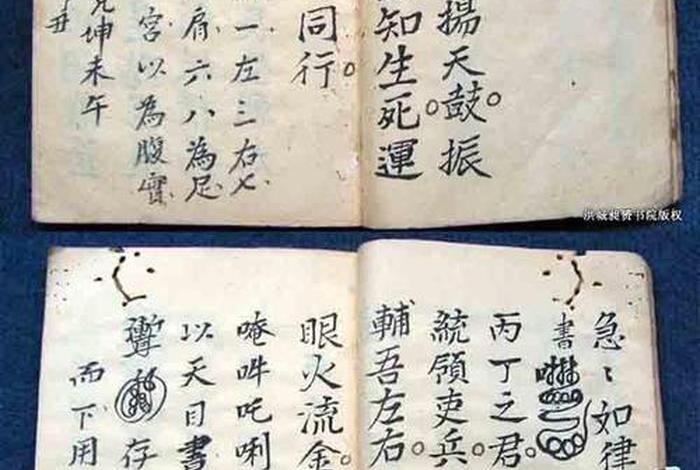 揚天鼓。振
知生死。運
同行。
一左三右七
肩六八為足
宮以為腹實
坤未午
丑
书院版权
急〻如律
書
丙丁之君。
統領吏兵。
輔吾左右。
眼火流金。
唵吽吒唎
以天目書
存
而下用